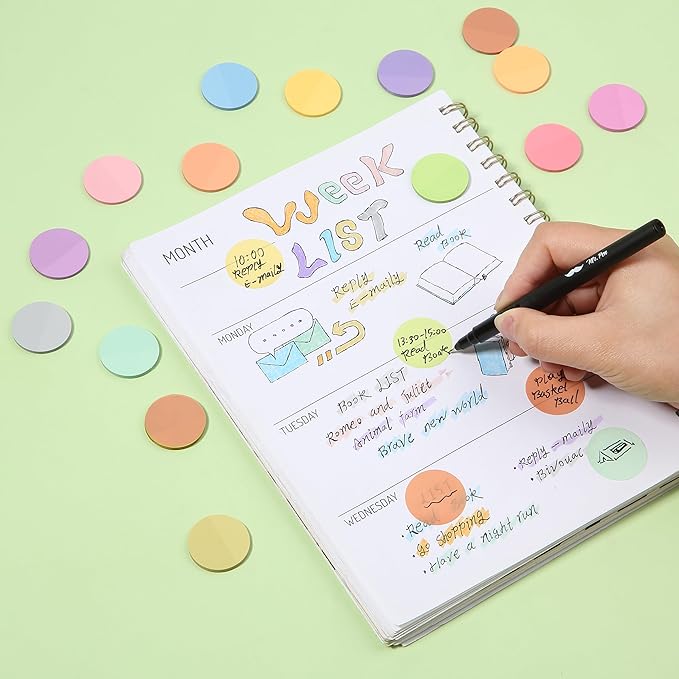 MONTH
Week
LIST
10:00
Reply
E-maily
MONDAY
Reply
E-maily
Read
Book
13:30-15:00
Read
Book
Mr. Pen
TUESDAY
Book LIST
Romeo and Juliet
Animal farm
Brave new world
Play
Basket
Ball
WEDNESDAY
LIST
• Read Book
• go shopping
• Have a night run
• Reply e-maily
• Bivouac